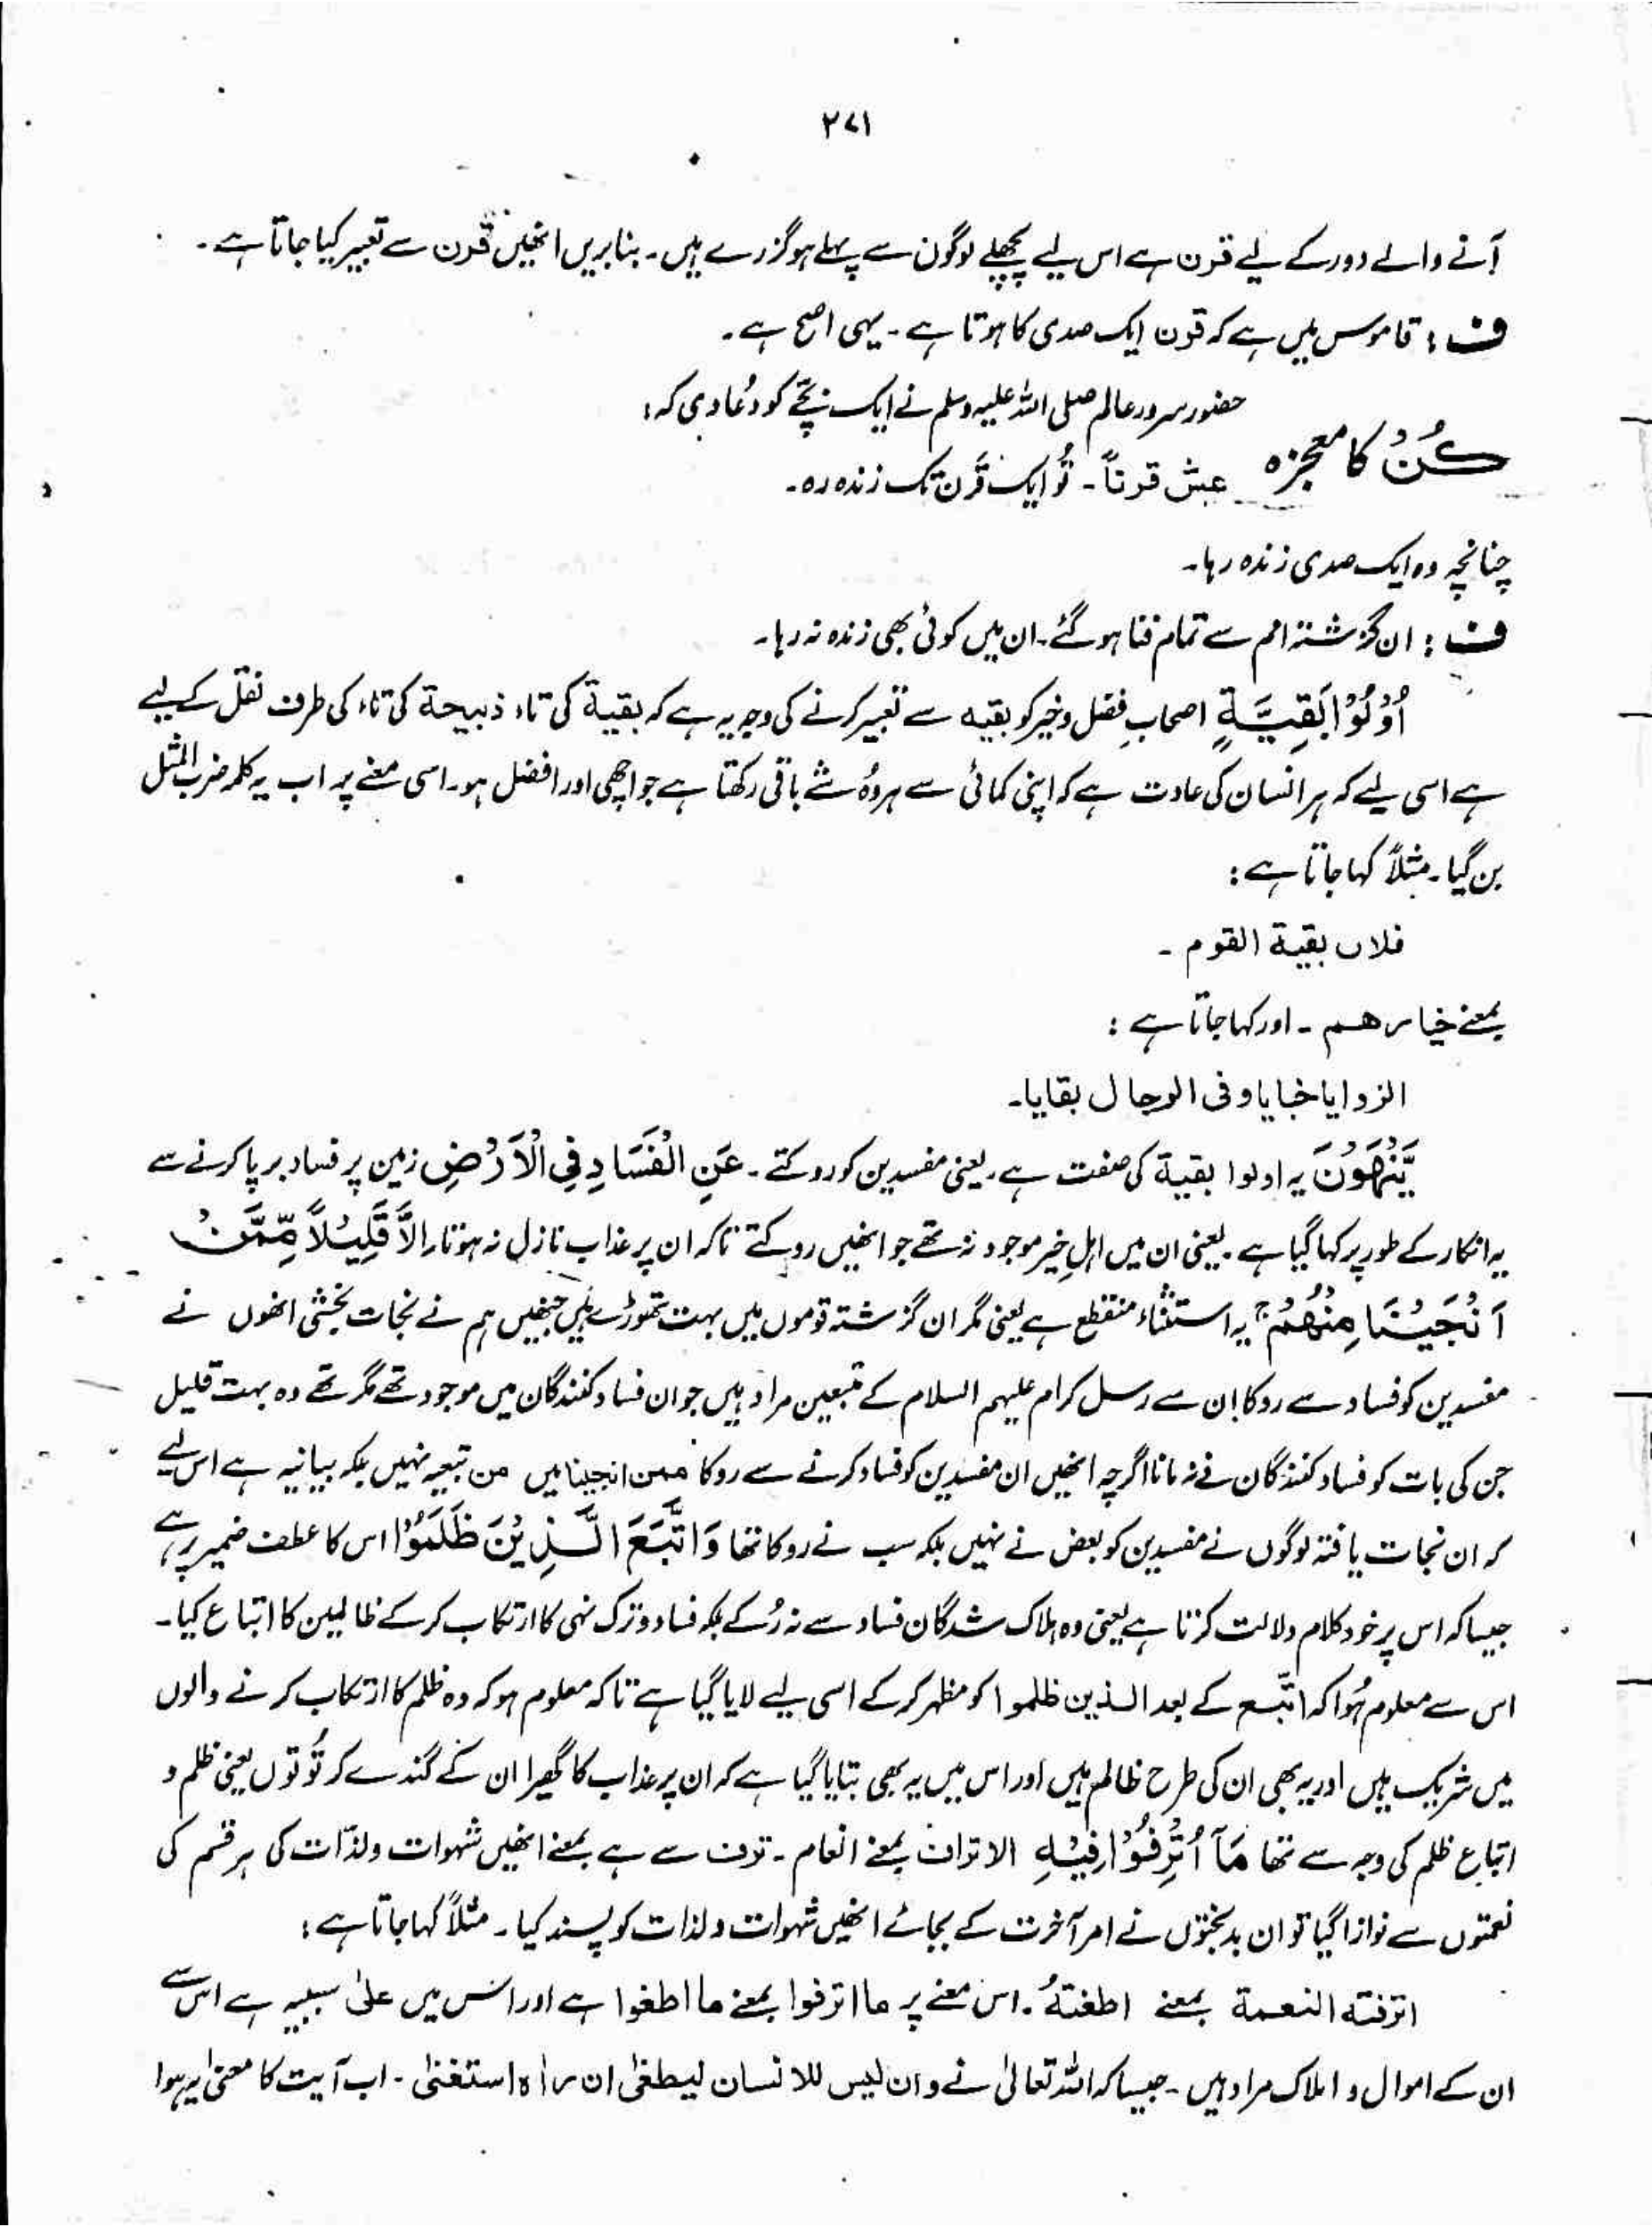 ۲۷۱
آنے والے دور کے لیے قرن ہے اس لیے پچھلے لوگوں سے پہلے ہو گزرے ہیں۔ بنا بریں انھیں قرن سے تعبیر کیا جاتا ہے۔
ف : قاموس میں ہے کہ قرن ایک صدی کا ہوتا ہے۔ یہی اصح ہے۔
حضور سرور عالم صلی اللہ علیہ وسلم نے ایک بچّے کو دُعا دی کہ:
کُنْ کا معجزہ
عش قرناً۔ تُو ایک قَرن تک زندہ رہ۔
چنانچہ وہ ایک صدی زندہ رہا۔
ف : ان گزشتہ امم سے تمام فنا ہو گئے۔ ان میں کوئی بھی زندہ نہ رہا۔
اُوْلُوْا بَقِیَّةٍ اصحابِ فضل و خیر کو بقیہ سے تعبیر کرنے کی وجہ یہ ہے کہ بقیة کی تاء ذبیحة کی تاء کی طرف نقل کے لیے
ہے اسی لیے کہ ہر انسان کی عادت ہے کہ اپنی کمائی سے ہر وُہ شے باقی رکھتا ہے جو اچھی اور افضل ہو۔ اسی معنے پر اب یہ کلمہ ضرب المثل
بن گیا۔ مثلاً کہا جاتا ہے:
فلاں بقیة القوم ۔
بمعنے خیارهم ۔ اور کہا جاتا ہے :
الزوایا خبایا و فی الرجال بقایا۔
یَّنْهَوْنَ یہ اولوا بقیة کی صفت ہے۔ یعنی مفسدین کو روکتے ۔ عَنِ الْفَسَادِ فِی الْاَرْضِ زمین پر فساد برپا کرنے سے
یہ انکار کے طور پر کہا گیا ہے۔ یعنی ان میں اہلِ خیر موجود نہ تھے جو انھیں روکتے تاکہ ان پر عذاب نازل نہ ہوتا۔ اِلَّا قَلِیْلًا مِّمَّنْ
اَنْجَیْنَا مِنْهُمْ ۚ یہ استثناء منقطع ہے یعنی مگر ان گزشتہ قوموں میں بہت تھوڑے ہیں جنھیں ہم نے نجات بخشی انھوں نے
مفسدین کو فساد سے روکا ان سے رسل کرام علیہم السلام کے متبعین مراد ہیں جو ان فساد کنندگان میں موجود تھے مگر تھے وہ بہت قلیل
جن کی بات کو فساد کنندگان نے نہ مانا اگرچہ انھیں ان مفسدین کو فساد کرنے سے روکا ممن انجینا میں من تبعیہ نہیں بلکہ بیانیہ ہے اس لیے
کہ ان نجات یافتہ لوگوں نے مفسدین کو بعض نے نہیں بلکہ سب نے روکا تھا وَاتَّبَعَ الَّذِیْنَ ظَلَمُوْا اس کا عطف ضمیر پر ہے
جیسا کہ اس پر خود کلام دلالت کرتا ہے یعنی وہ ہلاک شدگان فساد سے نہ رُکے بلکہ فساد و ترک نہی کا ارتکاب کر کے ظالمین کا اتباع کیا۔
اس سے معلوم ہُوا کہ اتّبع کے بعد الذین ظلموا کو مظہر کر کے اسی لیے لایا گیا ہے تاکہ معلوم ہو کہ وہ ظلم کا ارتکاب کرنے والوں
میں شریک ہیں اور یہ بھی ان کی طرح ظالم ہیں اور اس میں یہ بھی بتایا گیا ہے کہ ان پر عذاب کا گھیرا ان کے گندے کرتُوتوں یعنی ظلم و
اتباع ظلم کی وجہ سے تھا مَآ اُتْرِفُوْا فِیْهِ الاتراف بمعنے انعام ۔ ترف سے ہے بمعنے انھیں شہوات و لذّات کی ہر قسم کی
نعمتوں سے نوازا گیا تو ان بدبختوں نے امر آخرت کے بجائے انھیں شہوات و لذات کو پسند کیا۔ مثلاً کہا جاتا ہے:
اترفته النعمة بمعنے اطغتهُ ۔ اس معنے پر ما اترفوا بمعنے ما اطغوا ہے اور اس میں علیٰ سببیہ ہے اس سے
ان کے اموال و املاک مراد ہیں۔ جیسا کہ اللہ تعالیٰ نے و ان لیس للانسان لیطغیٰ ان راٰہ استغنیٰ ۔ اب آیت کا معنیٰ یہ ہوا